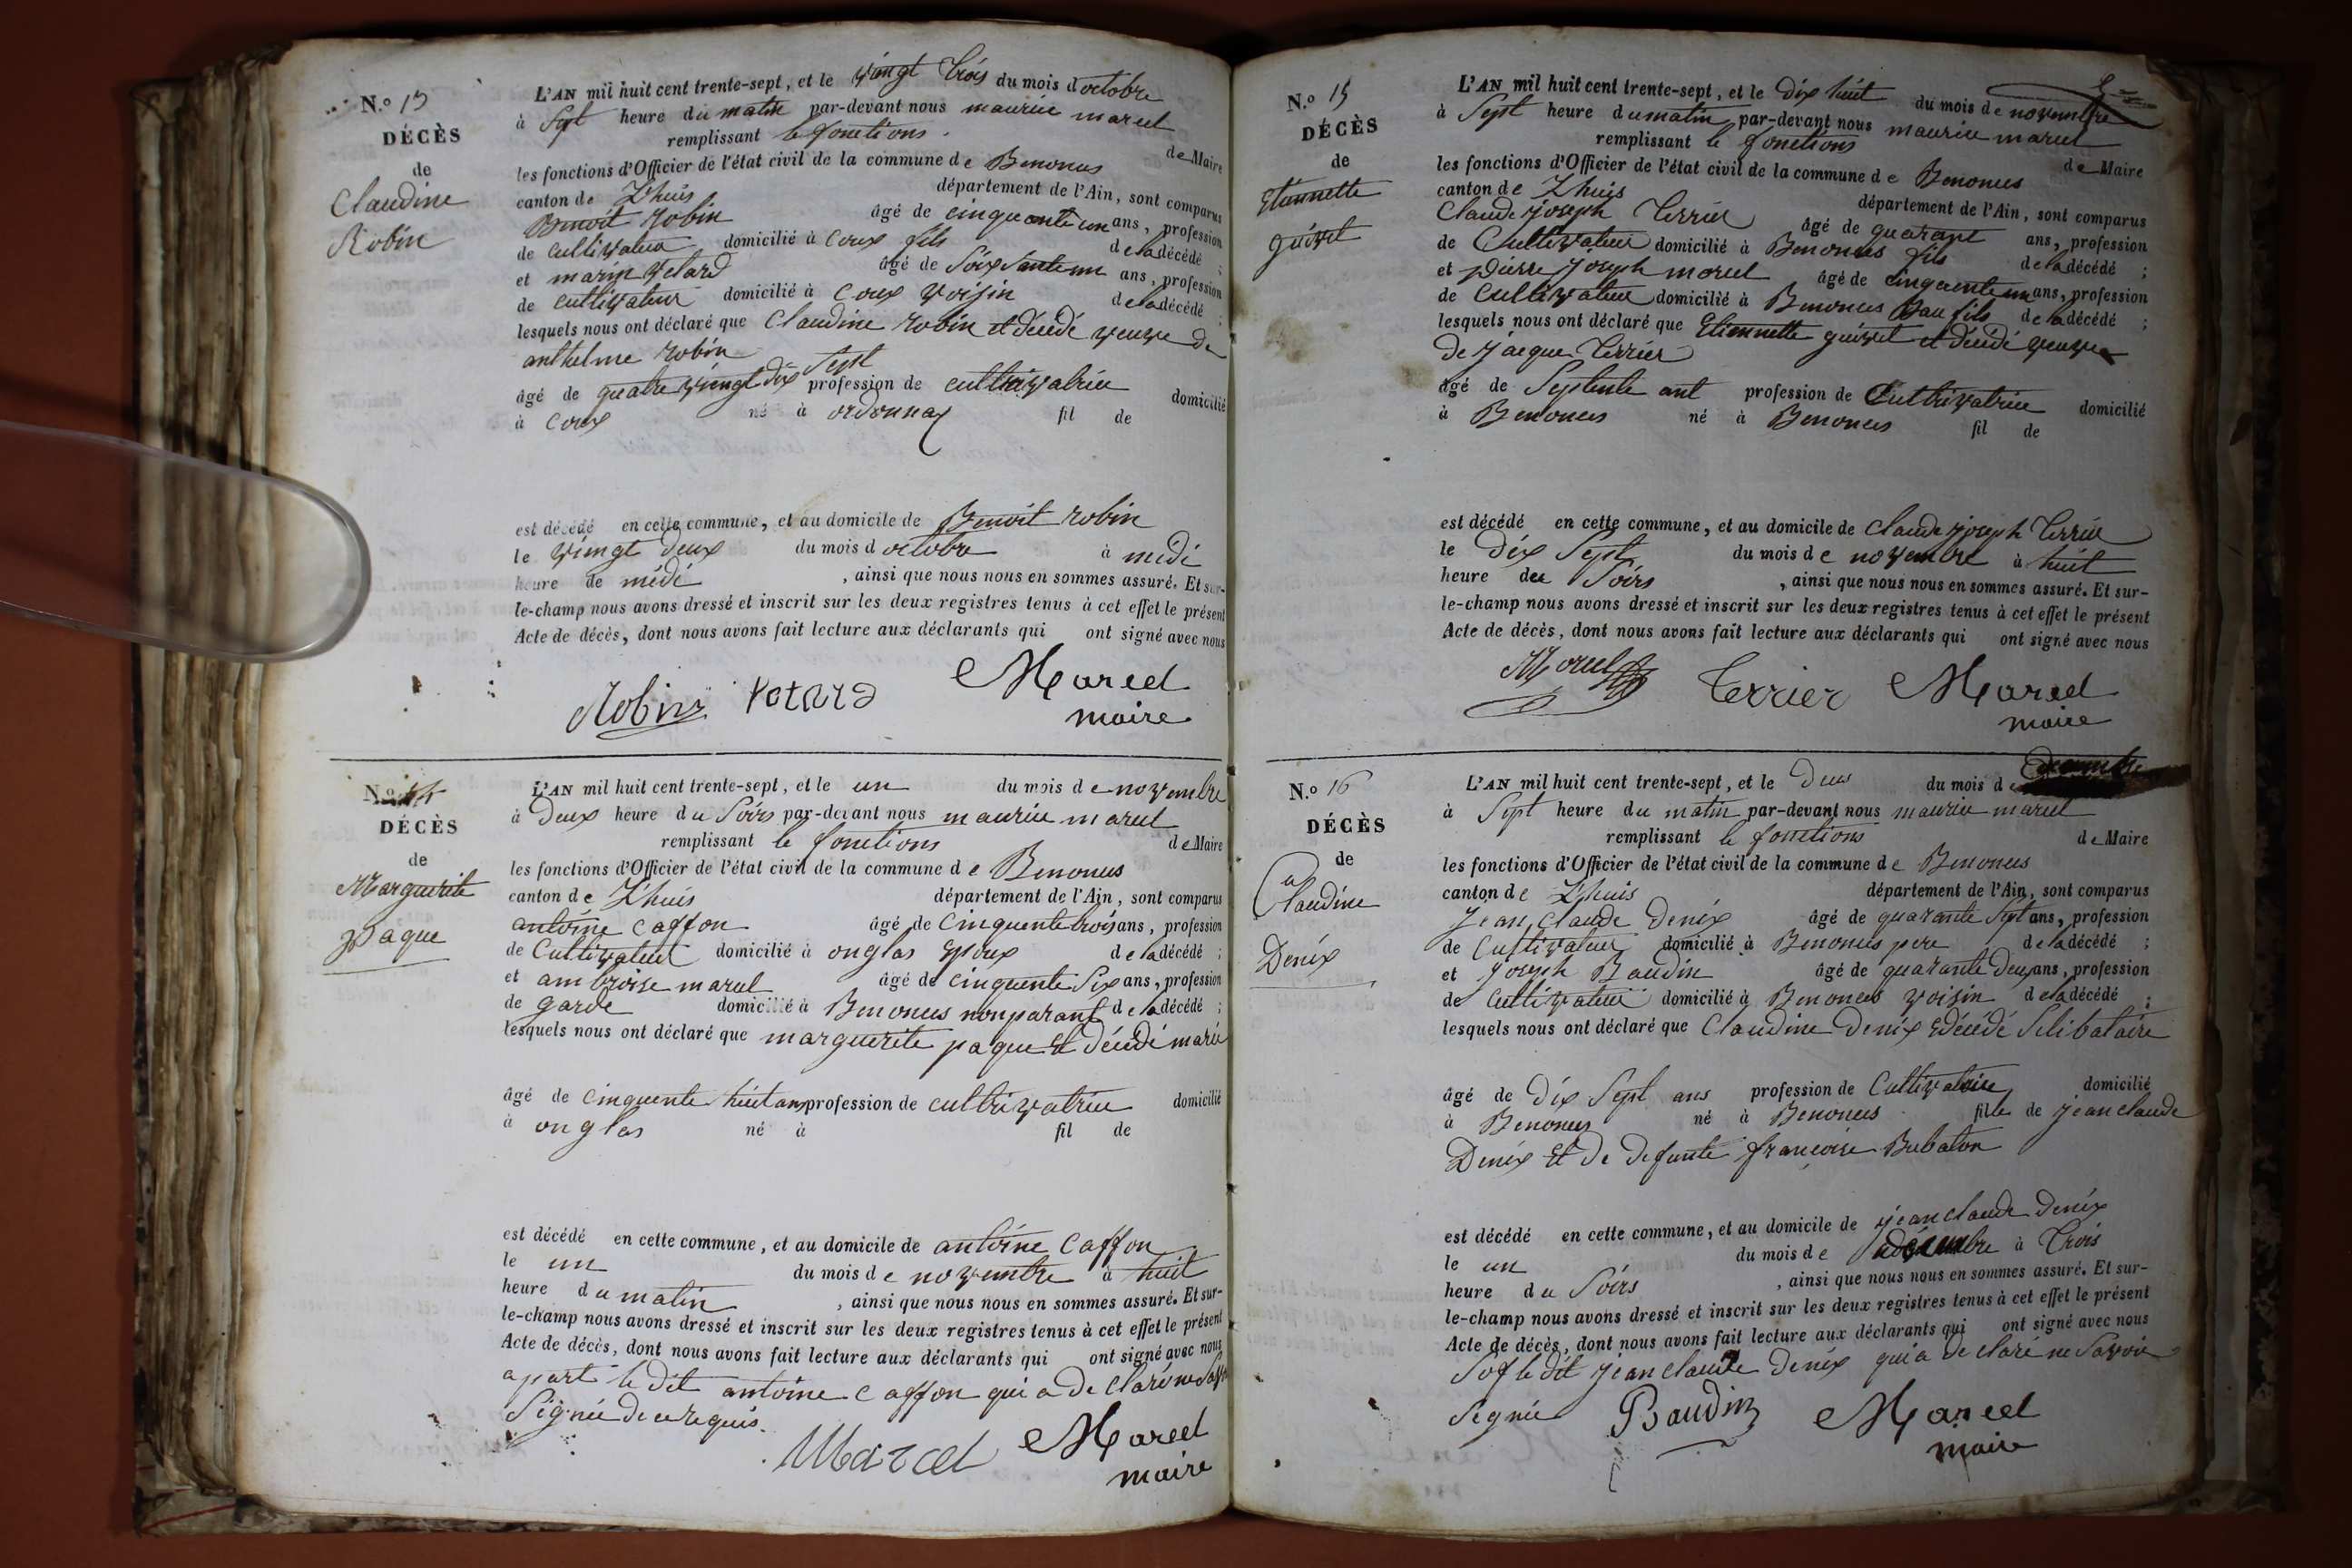 N.o 13
DÉCÈS
de
Claudine
Robin
L'AN mil huit cent trente-sept, et le vingt trois du mois d octobre
à Sept heure du matin par-devant nous maurice marcel
remplissant le fonctions de Maire
les fonctions d'Officier de l'état civil de la commune de Benonces
canton de L'huis département de l'Ain, sont comparus
Benoit Robin âgé de cinquante un ans, profession
de cultivateur domicilié à Coux fils de la décédé ;
et marin vetard âgé de Soixsante un ans, profession
de cultivateur domicilié à Coux voisin de la décédé ;
lesquels nous ont déclaré que Claudine robin et décédé veuve de
anthelme robin
âgé de quatre vingt dix Sept profession de cultrivatrice domicilié
à Coux né à ordonnax fil de
est décédé en cette commune, et au domicile de Benoit robin
le vingt deux du mois d octobre à midi
heure de midi , ainsi que nous nous en sommes assuré. Et sur-
le-champ nous avons dressé et inscrit sur les deux registres tenus à cet effet le présent
Acte de décès, dont nous avons fait lecture aux déclarants qui ont signé avec nous
Robin Vetard Marcel
maire
N.o 14
DÉCÈS
de
Marguerite
paque
L'AN mil huit cent trente-sept, et le un du mois de novembre
à Deux heure du Soirs par-devant nous maurice marcel
remplissant le fonctions de Maire
les fonctions d'Officier de l'état civil de la commune de Benonces
canton de L'huis département de l'Ain, sont comparus
antoine Caffon âgé de Cinquente trois ans, profession
de Cultivateur domicilié à onglas epoux de la décédé ;
et ambroise marcel âgé de cinquente Six ans, profession
de garde domicilié à Benonces non parant de la décédé ;
lesquels nous ont déclaré que marguerite paque et décédé marié
âgé de Cinquente huit ans profession de cultrivatrice domicilié
à onglas né à fil de
est décédé en cette commune, et au domicile de antoine Caffon
le un du mois de novembre à huit
heure du matin , ainsi que nous nous en sommes assuré. Et sur-
le-champ nous avons dressé et inscrit sur les deux registres tenus à cet effet le présent
Acte de décès, dont nous avons fait lecture aux déclarants qui ont signé avec nous
apart le dit antoine Caffon qui a de claré ne
Signée de ce requis.
Marcel Marcel
maire
N.o 15
DÉCÈS
de
Etiennette
guivet
L'AN mil huit cent trente-sept, et le dix huit du mois de novembre
à Sept heure du matin par-devant nous maurice marcel
remplissant le fonctions de Maire
les fonctions d'Officier de l'état civil de la commune de Benonces
canton de L'huis département de l'Ain, sont comparus
Claude joseph Terrier âgé de quarant ans, profession
de Cultivateur domicilié à Benonces fils de la décédé ;
et pierre joseph morel âgé de cinquente un ans, profession
de cultivateur domicilié à Benonces Bau fils de la décédé ;
lesquels nous ont déclaré que Etiennette guivet et décédé veuve
de jacque Terrier
âgé de Septente ant profession de Cultrivatrice domicilié
à Benonces né à Benonces fil de
est décédé en cette commune, et au domicile de Claude joseph Terrier
le Dix Sept du mois de novembre à huit
heure du Soirs , ainsi que nous nous en sommes assuré. Et sur-
le-champ nous avons dressé et inscrit sur les deux registres tenus à cet effet le présent
Acte de décès, dont nous avons fait lecture aux déclarants qui ont signé avec nous
Morel Terrier Marcel
maire
N.o 16
DÉCÈS
de
Claudine
Denix
L'AN mil huit cent trente-sept, et le Deux du mois de
à Sept heure du matin par-devant nous maurice marcel
remplissant le fonctions de Maire
les fonctions d'Officier de l'état civil de la commune de Benonces
canton de L'huis département de l'Ain, sont comparus
jean Claude Denix âgé de quarante Sept ans, profession
de Cultivateur domicilié à Benonces pere de la décédé ;
et joseph Baudin âgé de quarante deux ans, profession
de Cultivateur domicilié à Benonces voisin de la décédé ;
lesquels nous ont déclaré que Claudine Denix Et décédé Selibataire
âgé de Dix Sept ans profession de Cultivatrice domicilié
à Benonces né à Benonces fille de jean claude
Denix Et de defunte francoise Bubaton
est décédé en cette commune, et au domicile de jean claude Denix
le un du mois de décembre à Trois
heure du Soirs , ainsi que nous nous en sommes assuré. Et sur-
le-champ nous avons dressé et inscrit sur les deux registres tenus à cet effet le présent
Acte de décès, dont nous avons fait lecture aux déclarants qui ont signé avec nous
Sof le dit jean claude Denix qui a de claré ne Savoir
Segnée Baudin Marcel
maire